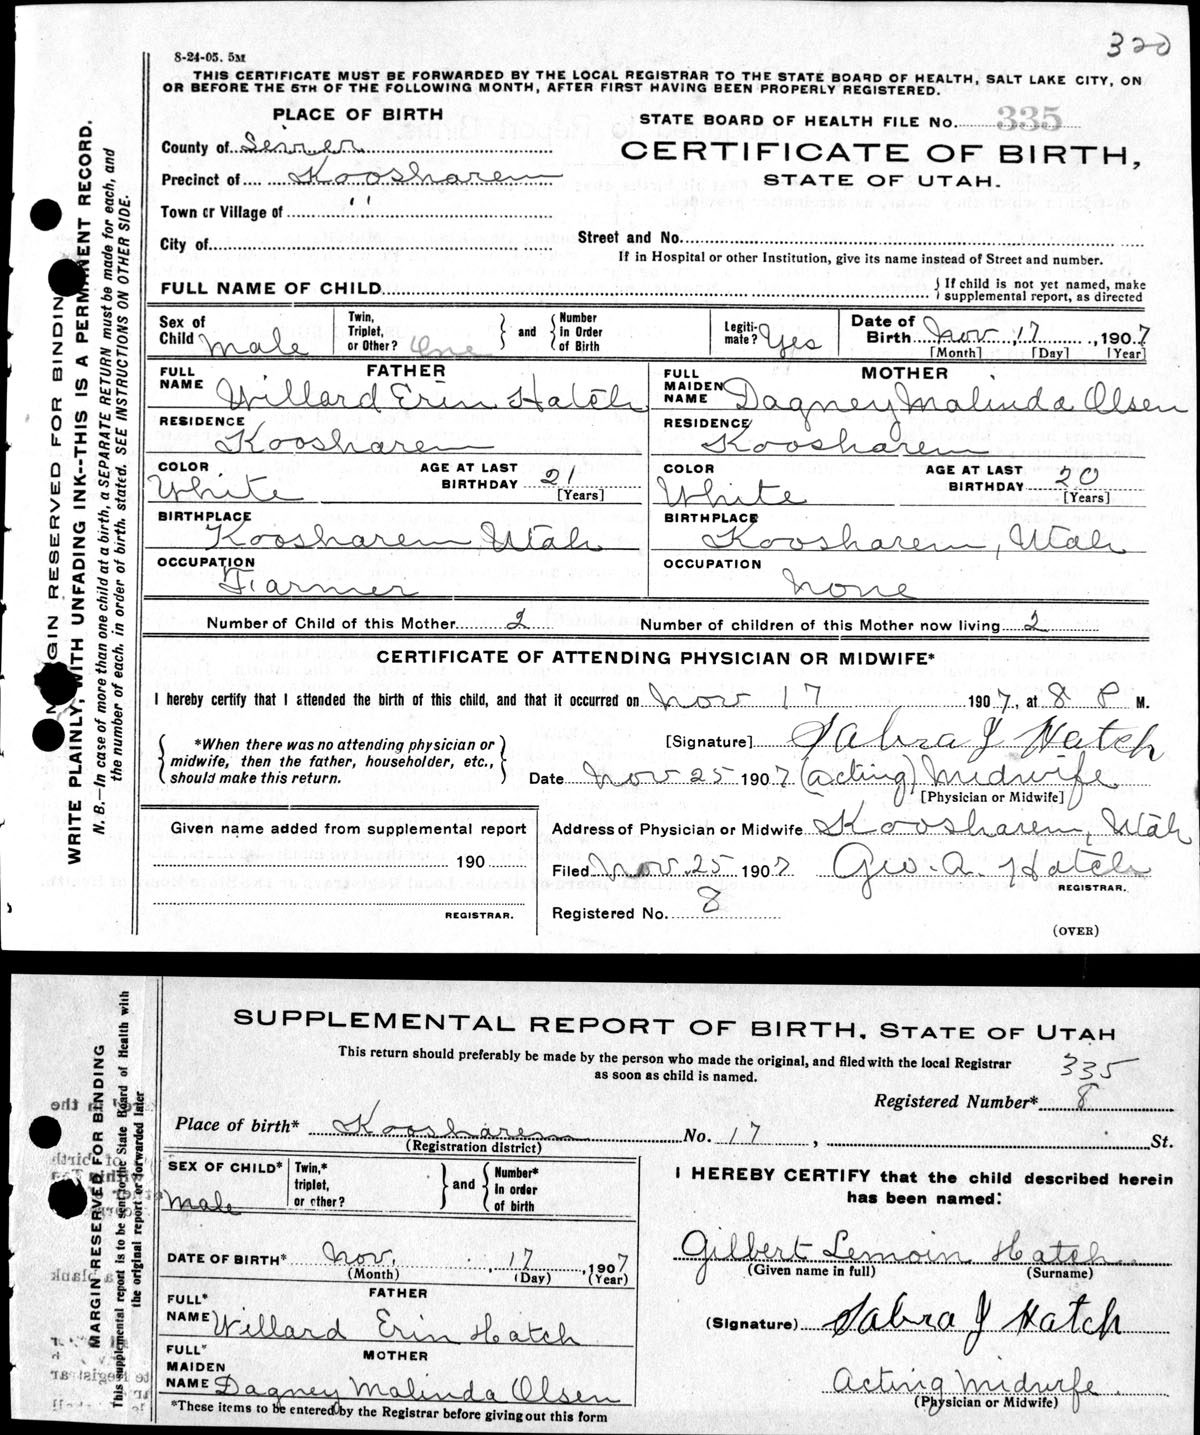 320
8-24-05. 5M
THIS CERTIFICATE MUST BE FORWARDED BY THE LOCAL REGISTRAR TO THE STATE BOARD OF HEALTH, SALT LAKE CITY, ON
OR BEFORE THE 5TH OF THE FOLLOWING MONTH, AFTER FIRST HAVING BEEN PROPERLY REGISTERED.
PLACE OF BIRTH
STATE BOARD OF HEALTH FILE No. 335
County of Sevier
CERTIFICATE OF BIRTH,
STATE OF UTAH.
Precinct of Koosharem
Town or Village of " "
City of
Street and No.
If in Hospital or other Institution, give its name instead of Street and number.
FULL NAME OF CHILD
{ If child is not yet named, make
supplemental report, as directed
Sex of Child Male
Twin, Triplet, or Other? One } and { Number in Order of Birth
Legiti-mate? Yes
Date of Birth Nov 17, 1907
[Month] [Day] [Year]
FATHER
MOTHER
FULL NAME Willard Erin Hatch
FULL MAIDEN NAME Dagney Malinda Olsen
RESIDENCE Koosharem
RESIDENCE Koosharem
COLOR White AGE AT LAST BIRTHDAY 21 [Years]
COLOR White AGE AT LAST BIRTHDAY 20 [Years]
BIRTHPLACE Koosharem, Utah
BIRTHPLACE Koosharem, Utah
OCCUPATION Farmer
OCCUPATION None
Number of Child of this Mother 2
Number of children of this Mother now living 2
CERTIFICATE OF ATTENDING PHYSICIAN OR MIDWIFE*
I hereby certify that I attended the birth of this child, and that it occurred on Nov 17 1907, at 8 P M.
{ *When there was no attending physician or
midwife, then the father, householder, etc.,
should make this return. }
[Signature] Sabra J Hatch
Date Nov 25 1907 (acting) Midwife
[Physician or Midwife]
Given name added from supplemental report
190
REGISTRAR.
Address of Physician or Midwife Koosharem, Utah
Filed Nov. 25 1907 Geo. A. Hatch
REGISTRAR.
Registered No. 8
(OVER)
MARGIN RESERVED FOR BINDING
WRITE PLAINLY, WITH UNFADING INK--THIS IS A PERMANENT RECORD.
N. B.—In case of more than one child at a birth, a SEPARATE RETURN must be made for each, and
the number of each, in order of birth, stated. SEE INSTRUCTIONS ON OTHER SIDE.
SUPPLEMENTAL REPORT OF BIRTH, STATE OF UTAH
This return should preferably be made by the person who made the original, and filed with the local Registrar
as soon as child is named.
335
Registered Number* 8
Place of birth* Koosharem No. 17, St.
(Registration district)
SEX OF CHILD* Male
Twin,* triplet, or other? } and { Number* in order of birth
DATE OF BIRTH* Nov. 17, 1907
(Month) (Day) (Year)
FATHER
FULL* NAME Willard Erin Hatch
MOTHER
FULL* MAIDEN NAME Dagney Malinda Olsen
*These items to be entered by the Registrar before giving out this form
I HEREBY CERTIFY that the child described herein
has been named:
Gilbert Lemoin Hatch
(Given name in full) (Surname)
(Signature) Sabra J Hatch
Acting Midwife
(Physician or Midwife)
MARGIN RESERVED FOR BINDING
This supplemental report is to be sent to the State Board of Health with
the original report or forwarded later